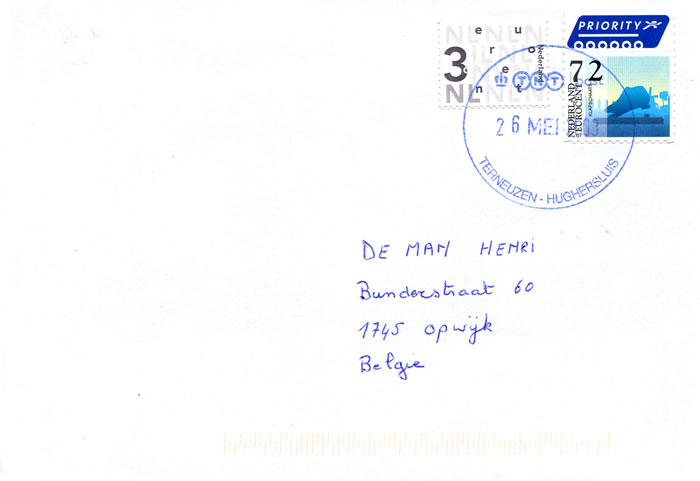 PRIORITY
NL NL NL
3 eurocent
Nederland
NL NL NL
72
NEDERLAND
EUROCENT
KLAPSCHAATS
TNT Post
26 MEI 03
TERNEUZEN - HUGHERSLUIS
DE MAN HENRI
Bunderstraat 60
1745 Opwijk
Belgie